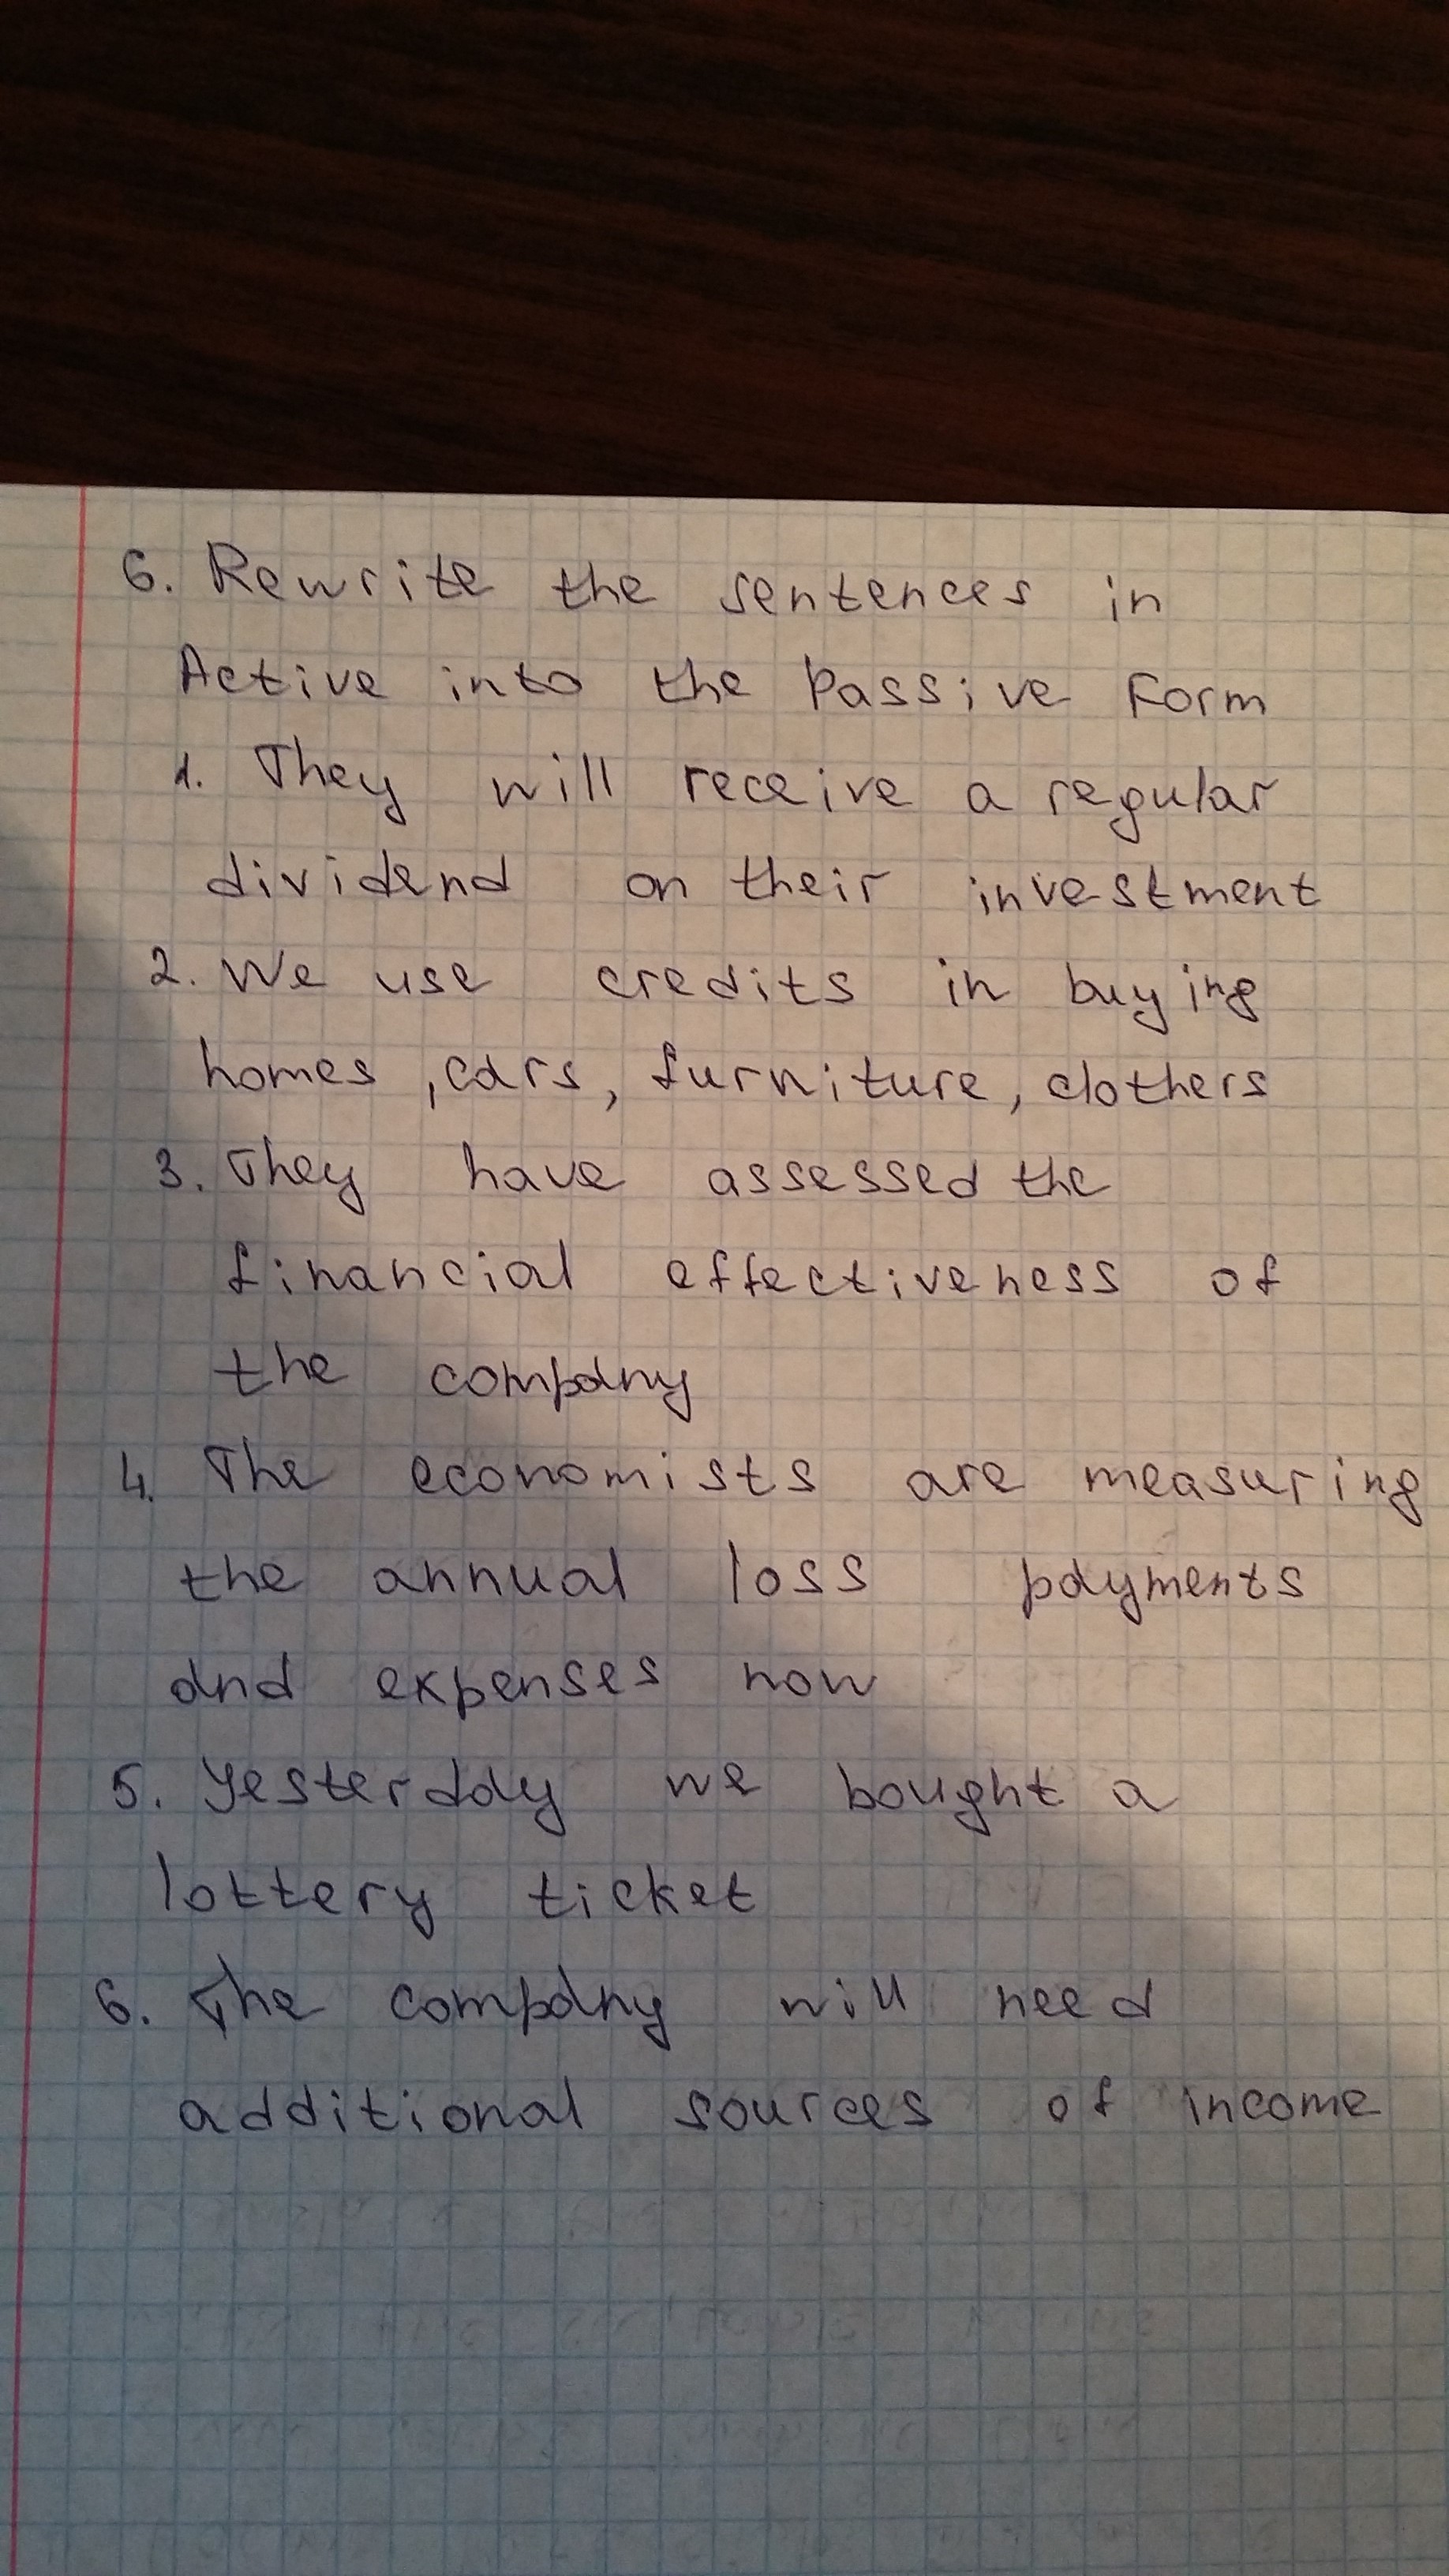 6. Rewrite the sentences in
Active into the Passive Form
1. They will receive a regular
dividend on their investment
2. We use credits in buying
homes, cars, furniture, clothers
3. They have assessed the
financial effectiveness of
the company
4. The economists are measuring
the annual loss payments
and expenses now
5. Yesterday we bought a
lottery ticket
6. The company will need
additional sources of income